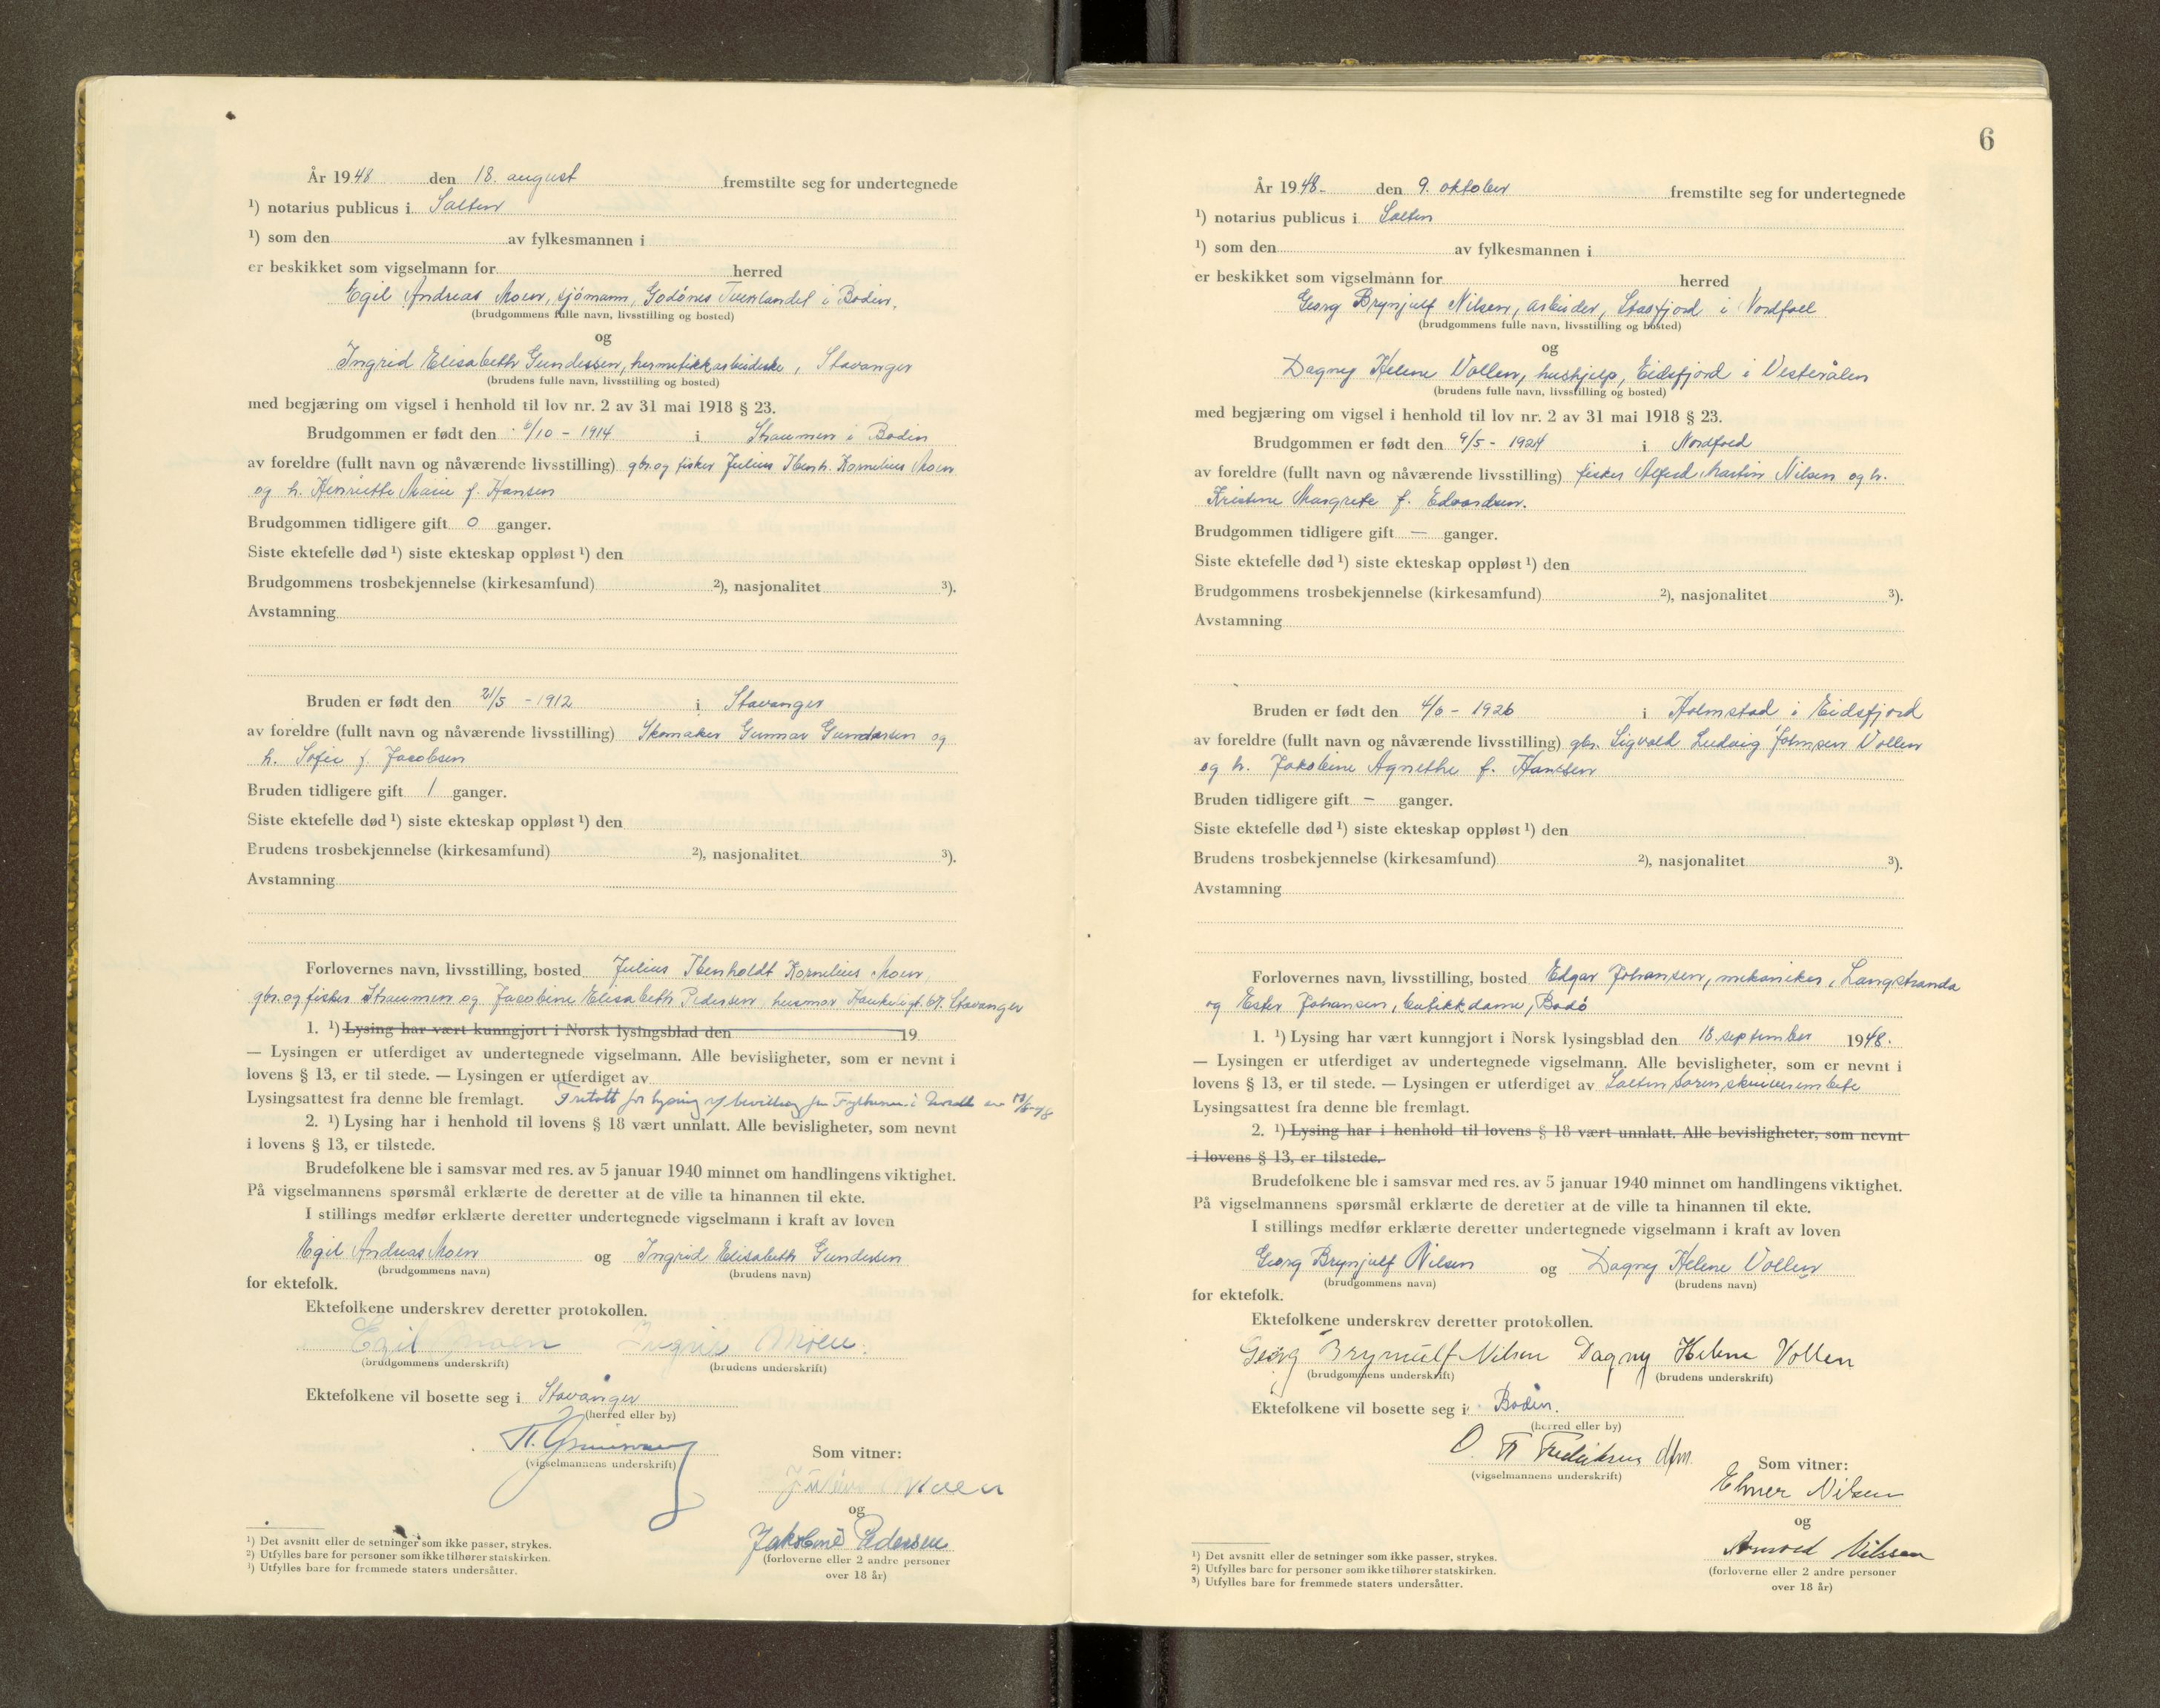 År 1948 den 18. august fremstilte seg for undertegnede
¹) notarius publicus i Salten
¹) som den av fylkesmannen i
er beskikket som vigselmann for herred
Egil Andreas Moen, sjömann, Godönes Tverlandet i Bodin.
(brudgommens fulle navn, livsstilling og bosted)
og
Ingrid Elisabeth Gundersen, hermetikkarbeiderske, Stavanger
(brudens fulle navn, livsstilling og bosted)
med begjæring om vigsel i henhold til lov nr. 2 av 31 mai 1918 § 23.
Brudgommen er født den /10 - 1914 i Straumen i Bodin
av foreldre (fullt navn og nåværende livsstilling) gbr. og fisker Julius Kornelius Moen
og h. Henriette Marie f. Hansen
Brudgommen tidligere gift 0 ganger.
Siste ektefelle død ¹) siste ekteskap oppløst ¹) den
Brudgommens trosbekjennelse (kirkesamfund) ²), nasjonalitet ³).
Avstamning
Bruden er født den 21/5 - 1912 i Stavanger
av foreldre (fullt navn og nåværende livsstilling) Skomaker Gunnar Gundersen og
h. Sofie f. Jacobsen
Bruden tidligere gift 1 ganger.
Siste ektefelle død ¹) siste ekteskap oppløst ¹) den
Brudens trosbekjennelse (kirkesamfund) ²), nasjonalitet ³).
Avstamning
Forlovernes navn, livsstilling, bosted Julius Ibenholdt Kornelius Moen,
gbr. og fisker Straumen og Jacobine Elisabeth Pedersen, husmor 67. Stavanger
1. ¹) Lysing har vært kunngjort i Norsk lysingsblad den 19
— Lysingen er utferdiget av undertegnede vigselmann. Alle bevisligheter, som er nevnt i
lovens § 13, er til stede. — Lysingen er utferdiget av
Lysingsattest fra denne ble fremlagt. Fritatt for lysing
2. ¹) Lysing har i henhold til lovens § 18 vært unnlatt. Alle bevisligheter, som nevnt
i lovens § 13, er tilstede.
Brudefolkene ble i samsvar med res. av 5 januar 1940 minnet om handlingens viktighet.
På vigselmannens spørsmål erklærte de deretter at de ville ta hinannen til ekte.
I stillings medfør erklærte deretter undertegnede vigselmann i kraft av loven
Egil Andreas Moen og Ingrid Elisabeth Gundersen
(brudgommens navn) (brudens navn)
for ektefolk.
Ektefolkene underskrev deretter protokollen.
Egil Moen Ingrid Moen.
(brudgommens underskrift) (brudens underskrift)
Ektefolkene vil bosette seg i Stavanger
(herred eller by)
(vigselmannens underskrift)
Som vitner:
Julius Moen
og
Jakobine Pedersen
(forloverne eller 2 andre personer
over 18 år)
¹) Det avsnitt eller de setninger som ikke passer, strykes.
²) Utfylles bare for personer som ikke tilhører statskirken.
¹) Utfylles bare for fremmede staters undersåtter.
6
År 1948- den 9. oktober fremstilte seg for undertegnede
¹) notarius publicus i Salten
¹) som den av fylkesmannen i
er beskikket som vigselmann for herred
Georg Brynjulf Nilsen, arbeider, i Nordfold
(brudgommens fulle navn, livsstilling og bosted)
og
Dagny Helene Vollen, hushjelp, Eidsfjord i Vesterålen
(brudens fulle navn, livsstilling og bosted)
med begjæring om vigsel i henhold til lov nr. 2 av 31 mai 1918 § 23.
Brudgommen er født den 9/5 - 1924 i Nordfold
av foreldre (fullt navn og nåværende livsstilling) fisker Alfred Martin Nilsen og h.
Kristine Margrete f. Edvardsen.
Brudgommen tidligere gift — ganger.
Siste ektefelle død ¹) siste ekteskap oppløst ¹) den
Brudgommens trosbekjennelse (kirkesamfund) ²), nasjonalitet ³).
Avstamning
Bruden er født den 4/6 - 1926 i Holmstad i Eidsfjord
av foreldre (fullt navn og nåværende livsstilling) gbr. Sigvald Ludvig Johnsen Vollen
og h. Jakobine Agnethe f. Hansen
Bruden tidligere gift - ganger.
Siste ektefelle død ¹) siste ekteskap oppløst ¹) den
Brudens trosbekjennelse (kirkesamfund) ²), nasjonalitet ³).
Avstamning
Forlovernes navn, livsstilling, bosted Edgar Johansen, mekaniker, Langstranda
og Ester Johansen, butikkdame, Bodö
1. ¹) Lysing har vært kunngjort i Norsk lysingsblad den 18. september 1948.
— Lysingen er utferdiget av undertegnede vigselmann. Alle bevisligheter, som er nevnt i
lovens § 13, er til stede. — Lysingen er utferdiget av Salten sorenskriverembete
Lysingsattest fra denne ble fremlagt.
2. ¹) Lysing har i henhold til lovens § 18 vært unnlatt. Alle bevisligheter, som nevnt
i lovens § 13, er tilstede.
Brudefolkene ble i samsvar med res. av 5 januar 1940 minnet om handlingens viktighet.
På vigselmannens spørsmål erklærte de deretter at de ville ta hinannen til ekte.
I stillings medfør erklærte deretter undertegnede vigselmann i kraft av loven
Georg Brynjulf Nilsen og Dagny Helene Vollen
(brudgommens navn) (brudens navn)
for ektefolk.
Ektefolkene underskrev deretter protokollen.
Georg Brynjulf Nilsen Dagny Helene Vollen
(brudgommens underskrift) (brudens underskrift)
Ektefolkene vil bosette seg i Bodin.
(herred eller by)
O. Fredriksen dfm.
(vigselmannens underskrift)
Som vitner:
Elmer Nilsen
og
Arnold Nilssen
(forloverne eller 2 andre personer
over 18 år)
¹) Det avsnitt eller de setninger som ikke passer, strykes.
²) Utfylles bare for personer som ikke tilhører statskirken.
³) Utfylles bare for fremmede staters undersåtter.